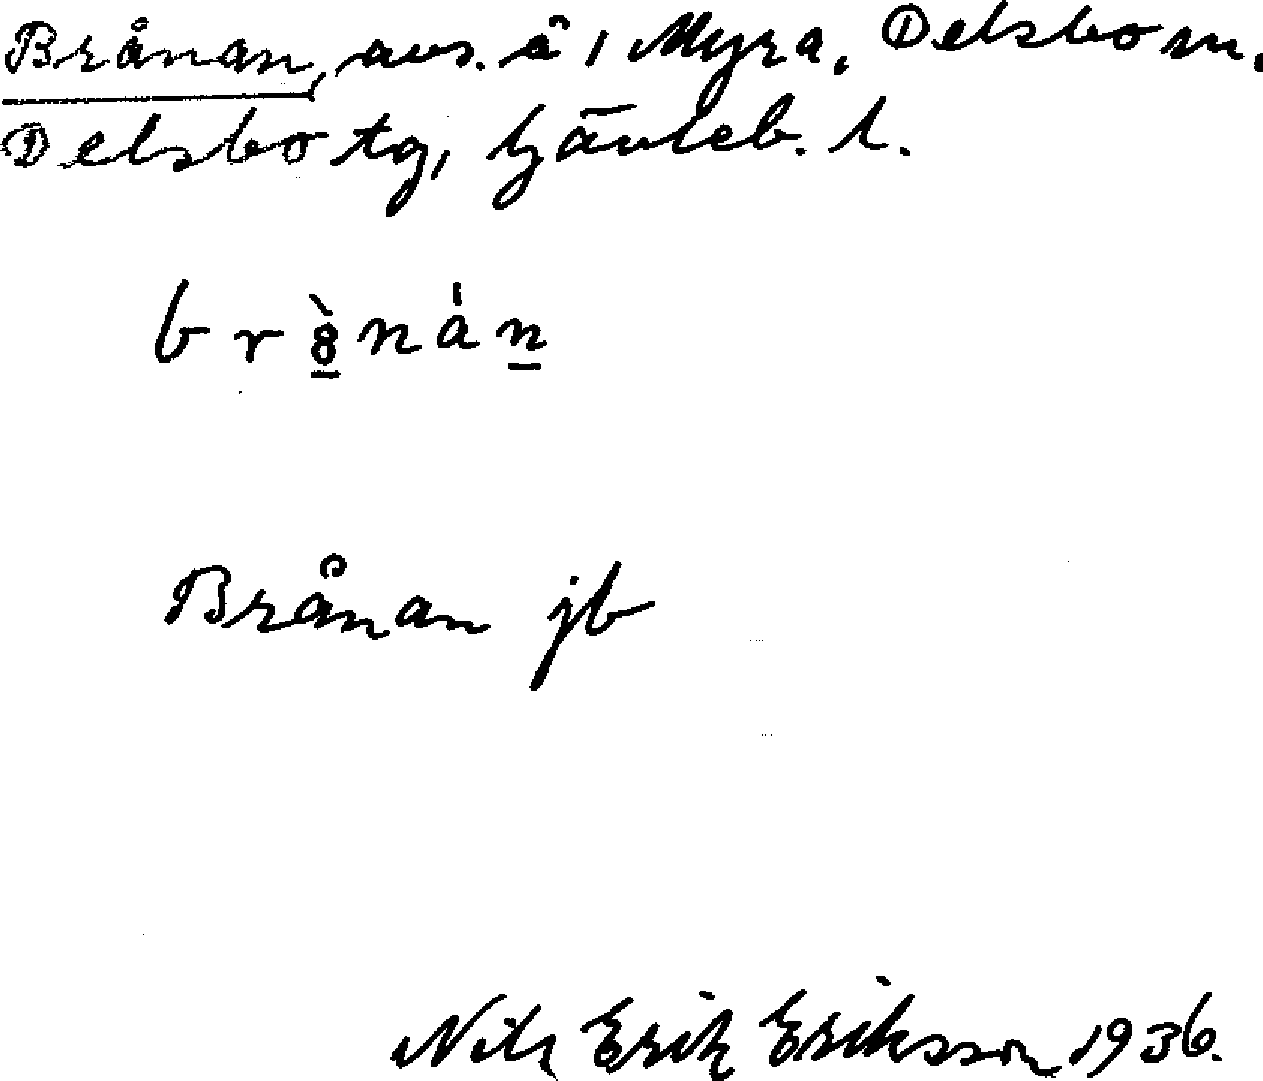 Brånan, avs. å i Myra, Delsbo sn.
Delsbo tg, Gävleb. l.
br8̲̀nán̲
Brånan jb
Nils Erik Eriksson 1936.